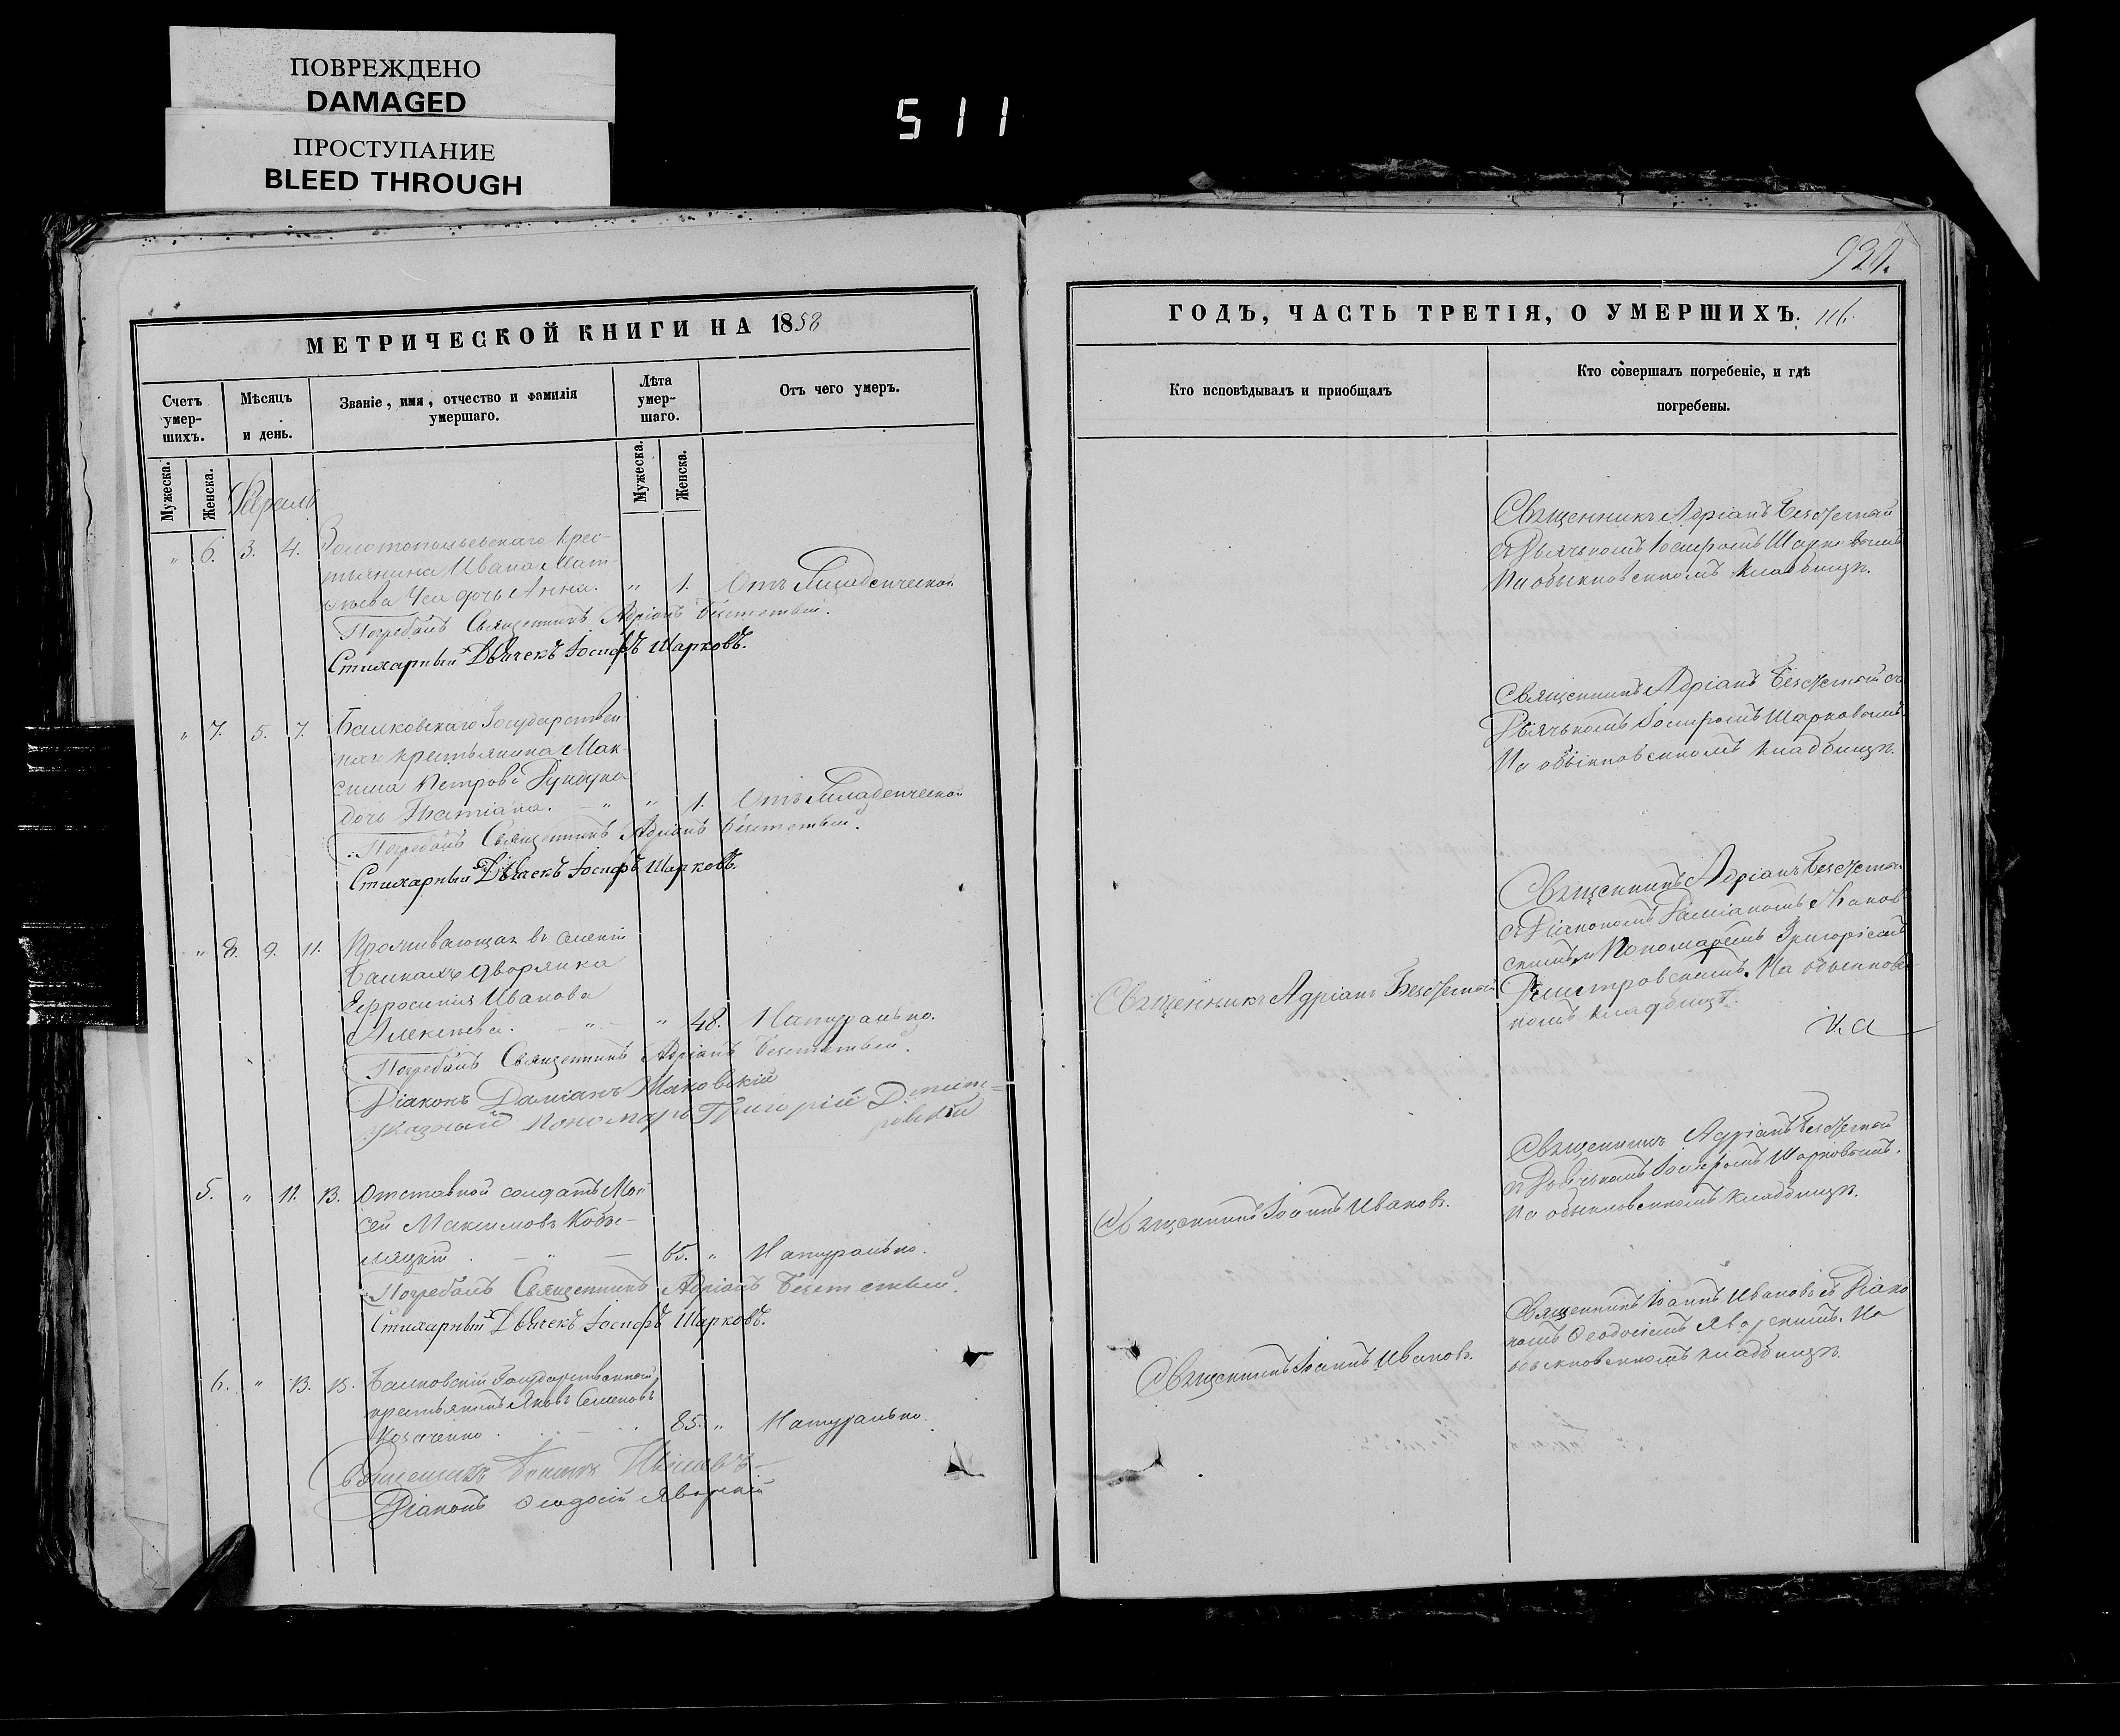 ПОВРЕЖДЕНО
DAMAGED
ПРОСТУПАНИЕ
BLEED THROUGH
511
МЕТРИЧЕСКОЙ КНИГИ НА 1858
Счетъ умер-шихъ.
Мѣсяцъ и день.
Званіе, имя, отчество и фамилія умершаго.
Лѣта умер-шаго.
Отъ чего умеръ.
Мужеска.
Женска.
Мужеска.
Женска.
" 6. 3. 4. Золотопольевскаго крес-
тьянина Ивана Мат-
дочь Анна. " 1. Отъ Младенческой
Погребалъ Священникъ Адріанъ
Стихарный Дьячекъ Іосифъ Шарковъ.
" 7. 5. 7. Балковскаго Государствен-
наго крестьянина Мак-
сима Петрова
дочь Татіана. " " 1. Отъ Младенческой
Погребалъ Священникъ Адріанъ
Стихарный Дьячекъ Іосифъ Шарковъ.
" 8. 9. 11. Проживающая въ селеніи
Балкахъ дворянка
Ефросинія Иванова
Алексѣева. " " 48. Натурально.
Погребалъ Священникъ Адріанъ
Діаконъ Даміанъ Маковскій
Указный Пономарь Григорій Дмит-
ровскій
5. " 11. 13. Отставной солдатъ Мои
сей Максимовъ Кобы-
ляцкій . — " — 65. " Натурально.
Погребалъ Священникъ Адріанъ
Стихарный Дьячекъ Іосифъ Шарковъ.
6. " 13. 15. Балковскій Государственный
крестьянинъ Яковъ Семеновъ
Козаченко . 85. " Натурально.
Священникъ Іоаннъ Ивановъ
Діаконъ Феодосій Яворскій
920.
ГОДЪ, ЧАСТЬ ТРЕТІЯ, О УМЕРШИХЪ. 116.
Кто исповѣдывалъ и приобщалъ
Кто совершалъ погребеніе, и гдѣ
погребены.
Священникъ Адріанъ
съ Дьячькомъ Іосифомъ Шарковымъ
На обыкновенномъ кладбищѣ.
Священникъ Адріанъ съ
Дьячькомъ Іосифомъ Шарковымъ
На обыкновенномъ кладбищѣ.
Священникъ Адріанъ
Священникъ Адріанъ
съ Діакономъ Даміаномъ Маков
скимъ и Пономаремъ Григоріемъ
Дмитровскимъ. На обыкновен
номъ кладбищѣ.
Священникъ Іоаннъ Ивановъ.
Священникъ Адріанъ
съ Дьячькомъ Іосифомъ Шарковымъ.
На обыкновенномъ кладбищѣ.
Священникъ Іоаннъ Ивановъ.
Священникъ Іоаннъ Ивановъ съ Діако
номъ Феодосіемъ Яворскимъ. На
обыкновенномъ кладбищѣ.